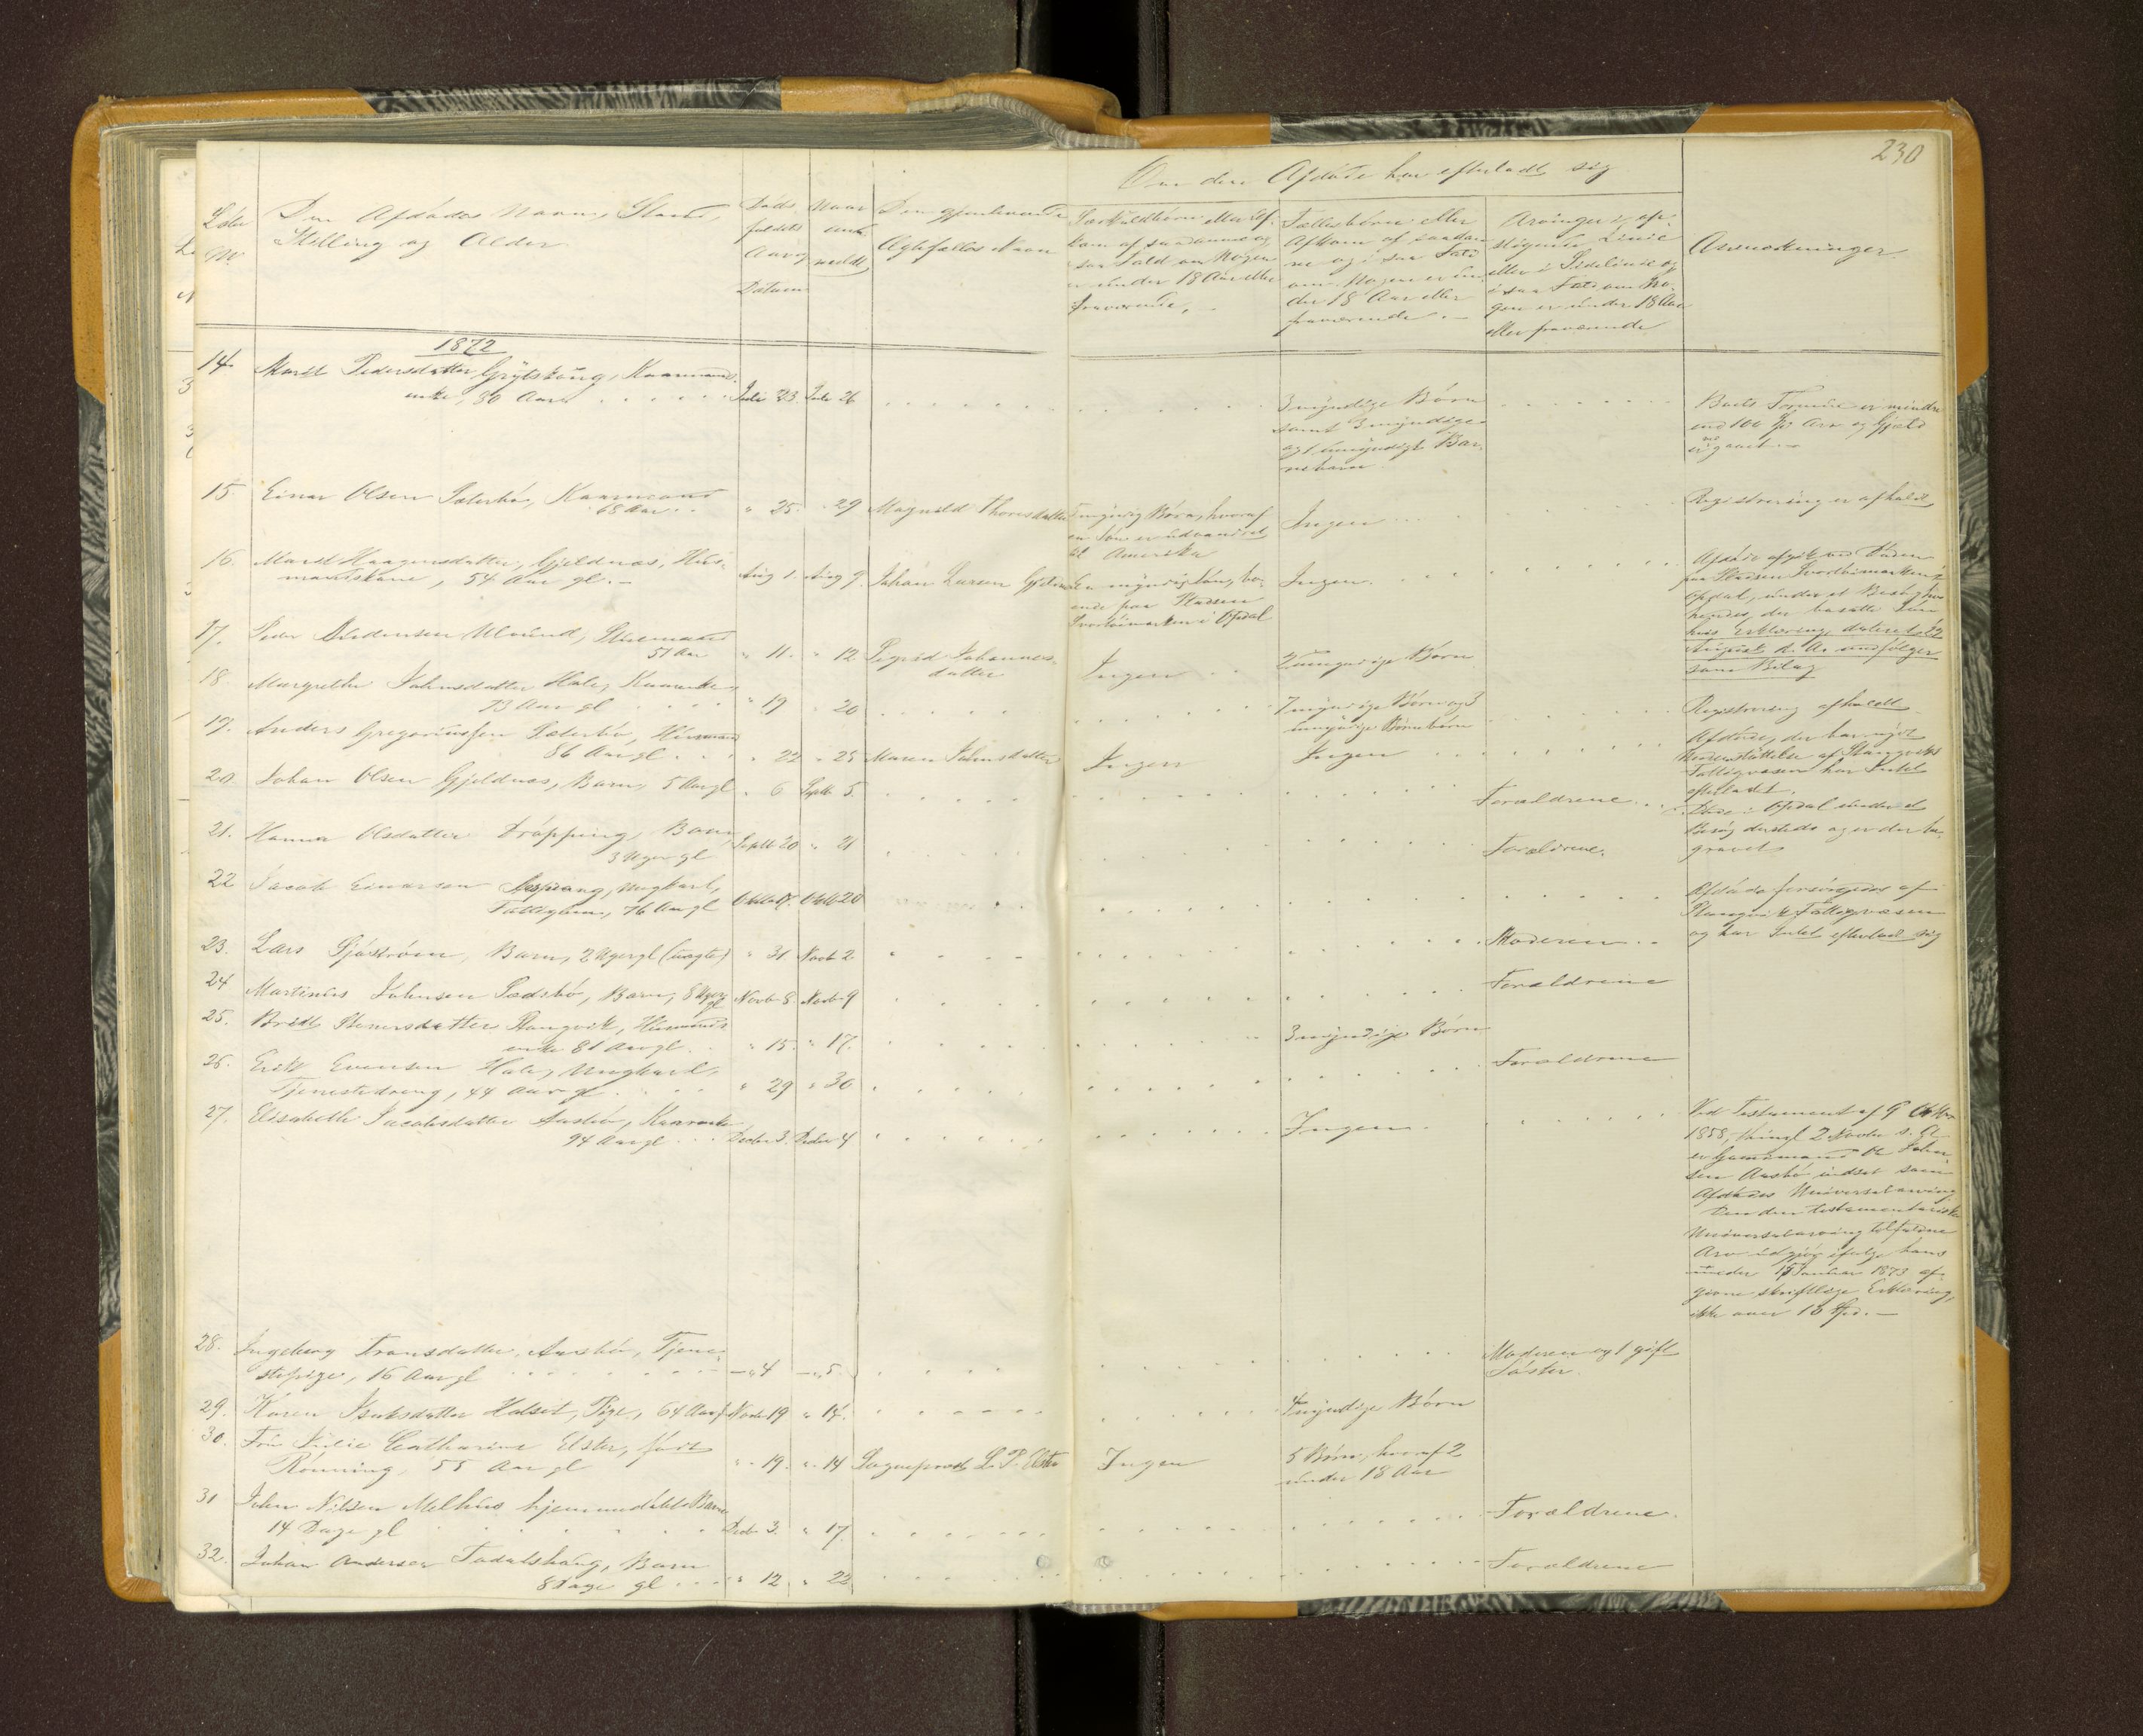 230
Om den Afdöde har efterladt sig
Löbe
No
Den Afdödes Navn, Stand,
Stilling og Alder
Döds
faldets
Aar og
Datum
Naar
an-
meldt
Den gjenlevende
Ægtefælles Navn
Særkuldbörn eller Af-
kom af saadanne og
i saa Fald om Nogen
er under 18 Aar eller
fraværende.
Fællesbörn eller
Afkom af saadan-
ne og i saa Fald
om Nogen er un-
der 18 Aar eller
fraværende.
Arvinger i op-
stigende Linie
eller i Sidelinie og
i saa Fald om No-
gen er under 18 Aar
eller fraværende
Anmærkninger
1872
14. Marit Pedersdatter Grytskoug, Kaarmands-
enke, 80 Aar Juli 23. Juli 26
3 myndige Börn
samt 3 myndige
og 1 umyndigt Bar-
nebarn.
Boets Formue er mindre
end 100 Spd Arv og Gjæld
er vedgaaet.
15. Einar Olsen Sæterbö, Kaarmand
68 Aar " 25. " 29 Magnild Thoresdatter
7 myndig Börn, hvoraf
en Sön er udvandret
til Amerika
Ingen
Registrering er afholdt
16. Marit Haagensdatter, Gjeldnæs, Hus-
mandskone, 54 Aar gl. Aug 1. Aug 9. Johan Larsen Gjeldnæs
En myndig Sön, bo-
ende paa Pladsen
Svartöimarken i Opdal
Ingen.
Afdöde afgik ved Döden
paa Pladsen Svartöimarken i
Opdal, under et Besög hos
hendes der bosatte Sön
hvis Erklæring dateret 22
August d. A. medfölger
som Bilag
17. Peder Ulvund,
51 Aar " 11. " 12 Sigrid Johannes-
datter
Ingen
2 umyndige Börn
18. Margrethe Johnsdatter Hale, Kaarenke
73 Aar gl " 19 " 20
7 myndige Börn og 3
umyndige Börnebörn
Registrering afholdt
19. Anders Gregoriussen Sæterbö, Husmand
86 Aar gl " 22 " 25 Maren Johnsdatter
Ingen
Ingen
Afdöde, der har nydt
Understöttelse af Stangviks
Fattigvæsen har Intet
efterladt.
20. Johan Olsen Gjeldnæs, Barn, 5 Aar gl " 6 Septb 5.
Forældrene
Döde i Opdal under et
Besög dersteds og er der be-
gravet
21. Hanna Olsdatter Dröpping, Barn
3 Uger gl Septb 20 " 21
Forældrene.
22 Jacob Einarsen Aspang, Ungkarl,
Fattiglem, 76 Aar gl Oktb 20
Afdöde forsörgedes af
Stangvik Fattigvæsen
og har Intet efterladt sig
23. Lars Sjöström, Barn, 2 Uger gl (uægte) " 31 Novb 2.
Moderen
24 Martinus Johnsen Sæterbö, Barn, 8 Uger
gl Novb 8. Novb 9
Forældrene
25. Brit Steinersdatter Stangvik, Husmands
enke 81 Aar gl " 15. " 17.
3 myndige Börn
26. Erik Evensen Hale, Ungkarl,
Tjenestedreng, 44 Aar gl " 29 " 30
Forældrene
27. Elisabeth Jacobsdatter Aasbö, Kaarenke
94 Aar gl Decbr 3. Decbr 4
Ingen.
Ved Testament af 9 Oktbr
1858, thingl 2 Novbr s. A.
er Gaardmand Ole John-
sen Aasbö indsat som
Afdödes Universalarving
Den den testamentariske
Universalarving tilfaldne
Arv udgjör ifölge hans
under 15 Januar 1873 af-
givne skriftlige Erklæring,
ikke over 10 Spd.
28. Ingeborg Tronsdatter Aasbö, Tjene-
stepige, 16 Aar gl " 4 " 5
Moderen og 1 gift
Söster.
29. Karen Isaksdatter Halset, Pige, 64 Aar gl Novb 19 " 14.
4 myndige Börn
30. Fru Julie Catharine Elster, födt
Rönning, 55 Aar gl " 19. " 14 Sogneprest L. P. Elster
Ingen
5 Börn, hvoraf 2
under 18 Aar
31 John Nilsen Melhus hjemmedöbt Barn
14 Dage gl Decbr 3. " 17.
Forældrene.
32. Johan Andersen Todalshaug, Barn
8 Dage gl " 12 " 22
Forældrene